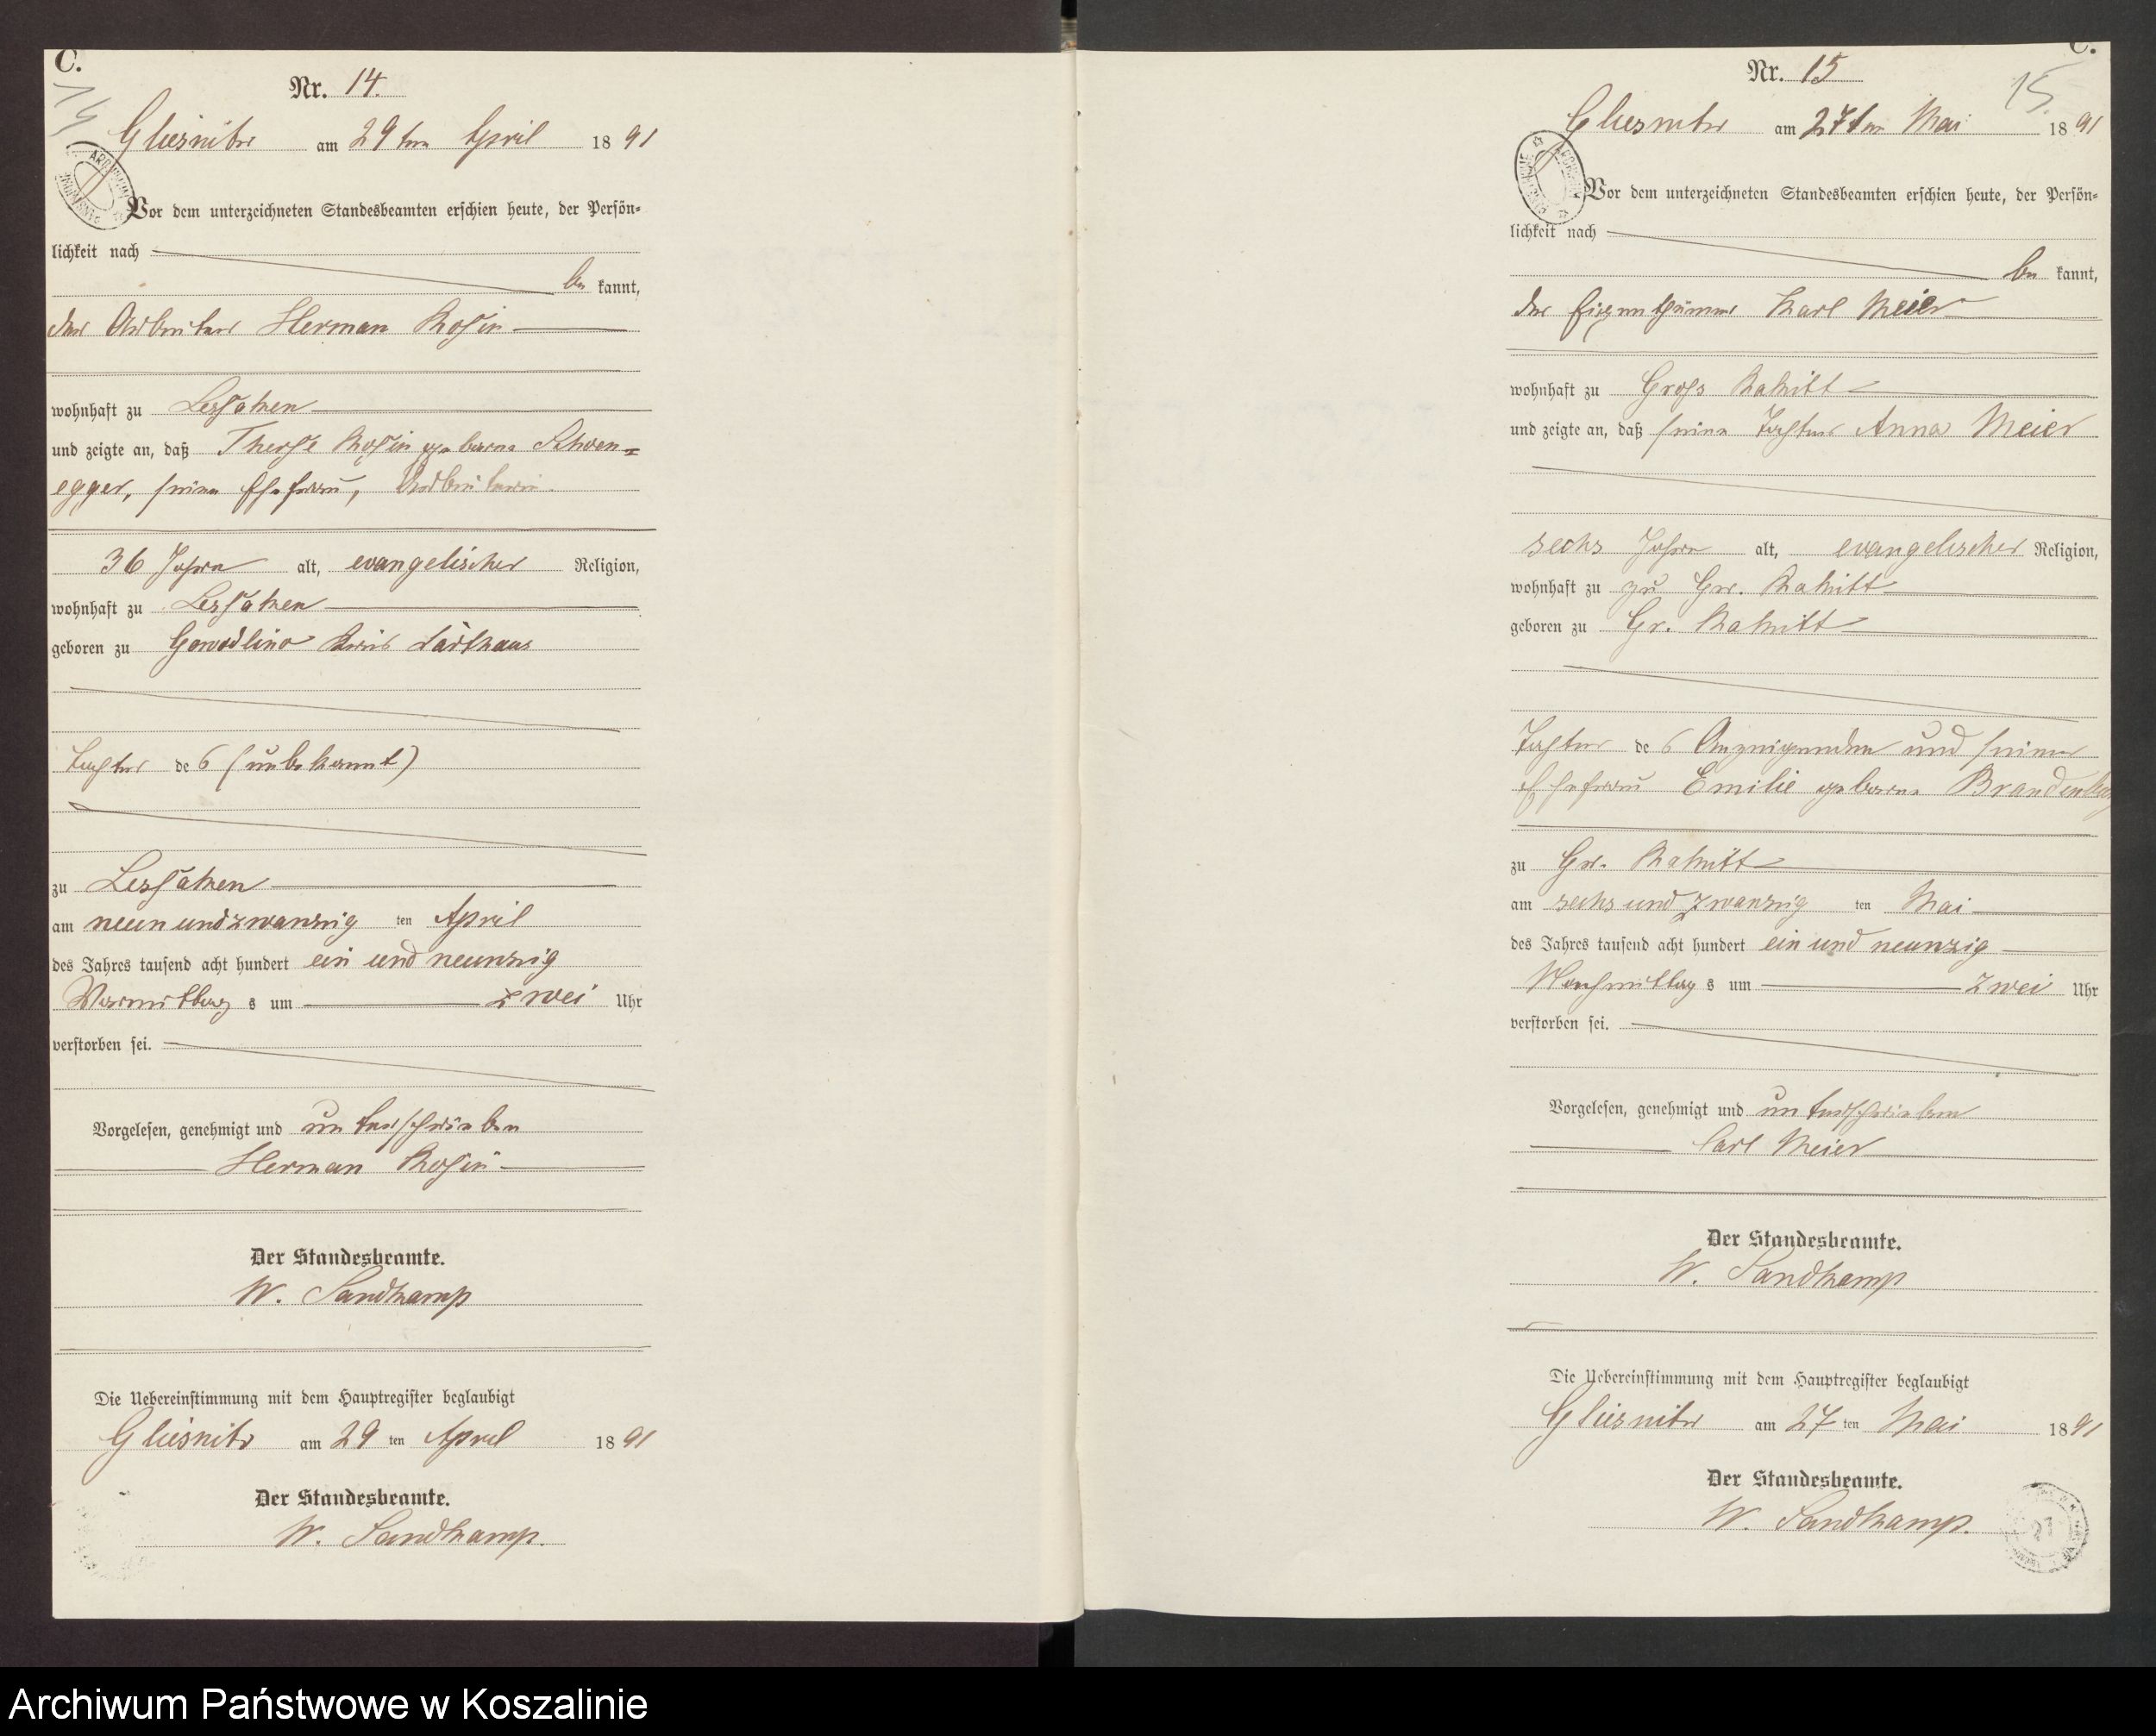 C.
14
Nr. 14.
Gliesnitz am 29ten April 1891
Vor dem unterzeichneten Standesbeamten erschien heute, der Persön-
lichkeit nach
be kannt,
der Arbeiter Herman Rosin
wohnhaft zu Lessaken
und zeigte an, daß Therese Rosin geborne Schoen-
egger, seine Ehefrau, Arbeiterin
36 Jahre alt, evangelischer Religion,
wohnhaft zu Lessaken
geboren zu Gowodlino Kreis Carthaus
Tochter des (unbekannt)
zu Lessaken
am neun und zwanzig ten April
des Jahres tausend acht hundert ein und neunzig
Vormittag s um zwei Uhr
verstorben sei.
Vorgelesen, genehmigt und unterschrieben
Herman Rosin
Der Standesbeamte.
W. Sandkamp
Die Uebereinstimmung mit dem Hauptregister beglaubigt
Gliesnitz am 29 ten April 1891
Der Standesbeamte.
W. Sandkamp.
C.
15
Nr. 15
Gliesnitz am 27ten Mai 1891
Vor dem unterzeichneten Standesbeamten erschien heute, der Persön-
lichkeit nach
be kannt,
der Eigenthümer Karl Meier
wohnhaft zu Gross Rakitt
und zeigte an, daß seine Tochter Anna Meier
sechs Jahre alt, evangelischer Religion,
wohnhaft zu zu Gr. Rakitt
geboren zu Gr. Rakitt
Tochter des Anzeigenden und seiner
Ehefrau Emilie geborne Brandenburg
zu Gr. Rakitt
am sechs und zwanzig ten Mai
des Jahres tausend acht hundert ein und neunzig
Nachmittag s um zwei Uhr
verstorben sei.
Vorgelesen, genehmigt und unterschrieben
Carl Meier
Der Standesbeamte.
W. Sandkamp
Die Uebereinstimmung mit dem Hauptregister beglaubigt
Gliesnitz am 27 ten Mai 1891
Der Standesbeamte.
W. Sandkamp.
Archiwum Państwowe w Koszalinie